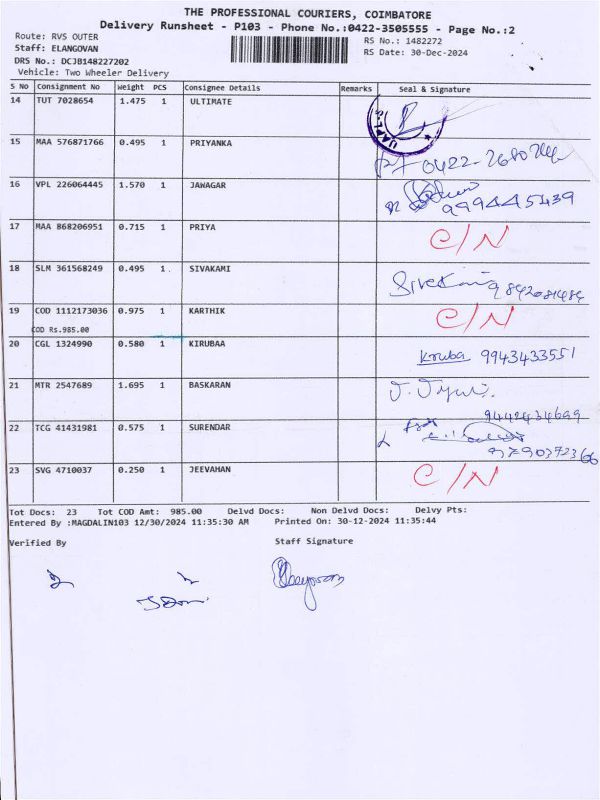 THE PROFESSIONAL COURIERS, COIMBATORE
Delivery Runsheet - P103 - Phone No.:0422-3505555 - Page No.:2
Route: RVS OUTER
RS No.: 1482272
Staff: ELANGOVAN
RS Date: 30-Dec-2024
DRS No.: DCJB148227202
Vehicle: Two Wheeler Delivery
S No Consignment No Weight PCS Consignee Details Remarks Seal & Signature
14 TUT 7028654 1.475 1 ULTIMATE
15 MAA 576871766 0.495 1 PRIYANKA
0422-2680
16 VPL 226064445 1.570 1 JAWAGAR
9994445439
17 MAA 868206951 0.715 1 PRIYA C/N
18 SLM 361568249 0.495 1 SIVAKAMI
Sivakami 9842081484
19 COD 1112173036 0.975 1 KARTHIK C/N
COD Rs.985.00
20 CGL 1324990 0.580 1 KIRUBAA
Kruba 9943433551
21 MTR 2547689 1.695 1 BASKARAN
9442434699
22 TCG 41431981 0.575 1 SURENDAR
9790372366
23 SVG 4710037 0.250 1 JEEVAHAN C/N
Tot Docs: 23 Tot COD Amt: 985.00 Delvd Docs: Non Delvd Docs: Delvy Pts:
Entered By :MAGDALIN103 12/30/2024 11:35:30 AM Printed On: 30-12-2024 11:35:44
Verified By Staff Signature